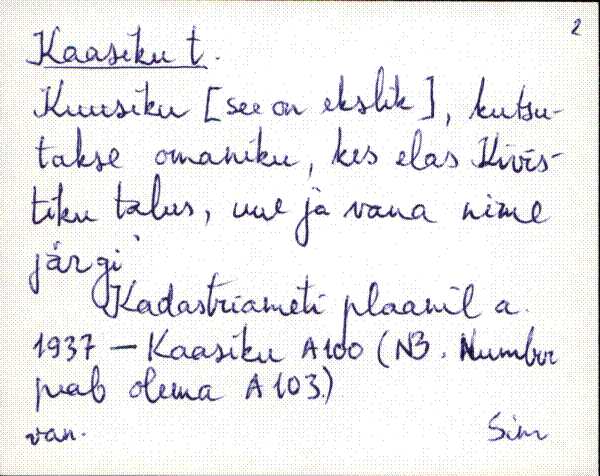 2
Kaasiku t.
Kuusiku [see on ekslik], kutsu-
takse omaniku, kes elas Kivis-
tiku talus, uue ja vana nime
järgi
Kadastriameti plaanil a.
1937 — Kaasiku A100 (NB. Number
peab olema A103.)
van. Sim